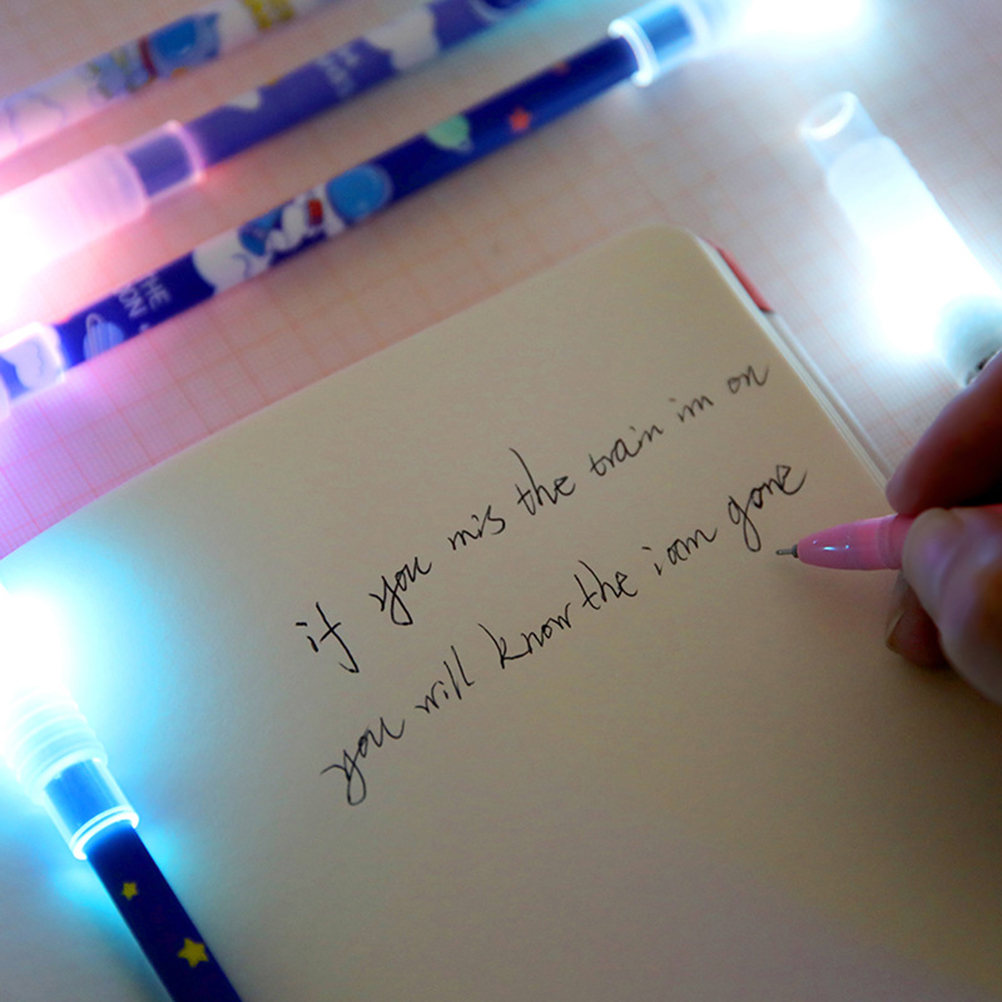 THE
if you mis the train im on
you will know the iam gone